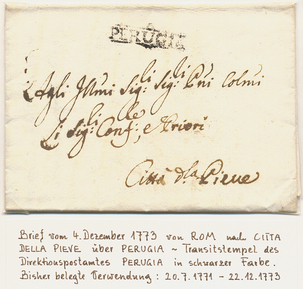 PERUGIA
Agli Illmi Sig: Sig: Pni Colmi
Li Sig: Conf: e Priori
Città d.la Pieve
Brief vom 4. Dezember 1773 von ROM nach CITTA
DELLA PIEVE über PERUGIA ~ Transitstempel des
Direktionspostamtes PERUGIA in schwarzer Farbe.
Bisher belegte Verwendung: 20.7.1771 - 22.12.1773